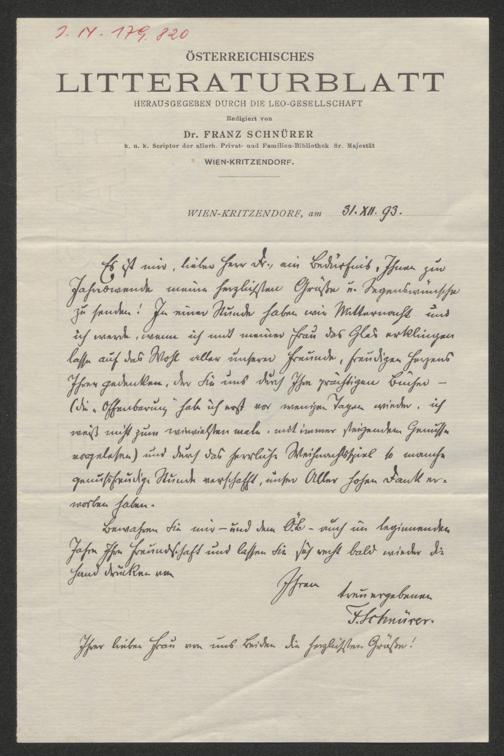 J. N. 179.820
ÖSTERREICHISCHES
LITTERATURBLATT
HERAUSGEGEBEN DURCH DIE LEO-GESELLSCHAFT
Redigiert von
Dr. FRANZ SCHNÜRER
k. u. k. Scriptor der allerh. Privat- und Familien-Bibliothek Sr. Majestät
WIEN-KRITZENDORF.
WIEN-KRITZENDORF, am 31. XII. 93.
Es ist mir, lieber Herr Dr., ein Bedürfnis, Ihnen zur
Jahreswende meine herzlichsten Grüße u. Segenswünsche
zu senden! In einer Stunde haben wir Mitternacht und
ich werde, wenn ich mit meiner Frau das Glas erklingen
lasse auf das Wohl aller unserer Freunde, freudigen Herzens
Ihrer gedenken, der Sie uns durch Ihre prächtigen Bücher –
(die „Offenbarung“ habe ich erst vor wenigen Tagen wieder, ich
weiß nicht zum wievielten male, mit immer steigendem Genusse
vorgelesen) und durch das herrliche Weihnachtsspiel so manche
genußfreudige Stunde verschafft, unser Aller hohen Dank er-
worben haben.
Bewahren Sie mir – und dem ÖL – auch im beginnenden
Jahre Ihre Freundschaft und lassen Sie sich recht bald wieder die
Hand drücken von
Ihrem
treuergebenen
F. Schnürer.
Ihrer lieben Frau von uns Beiden die herzlichsten Grüße!